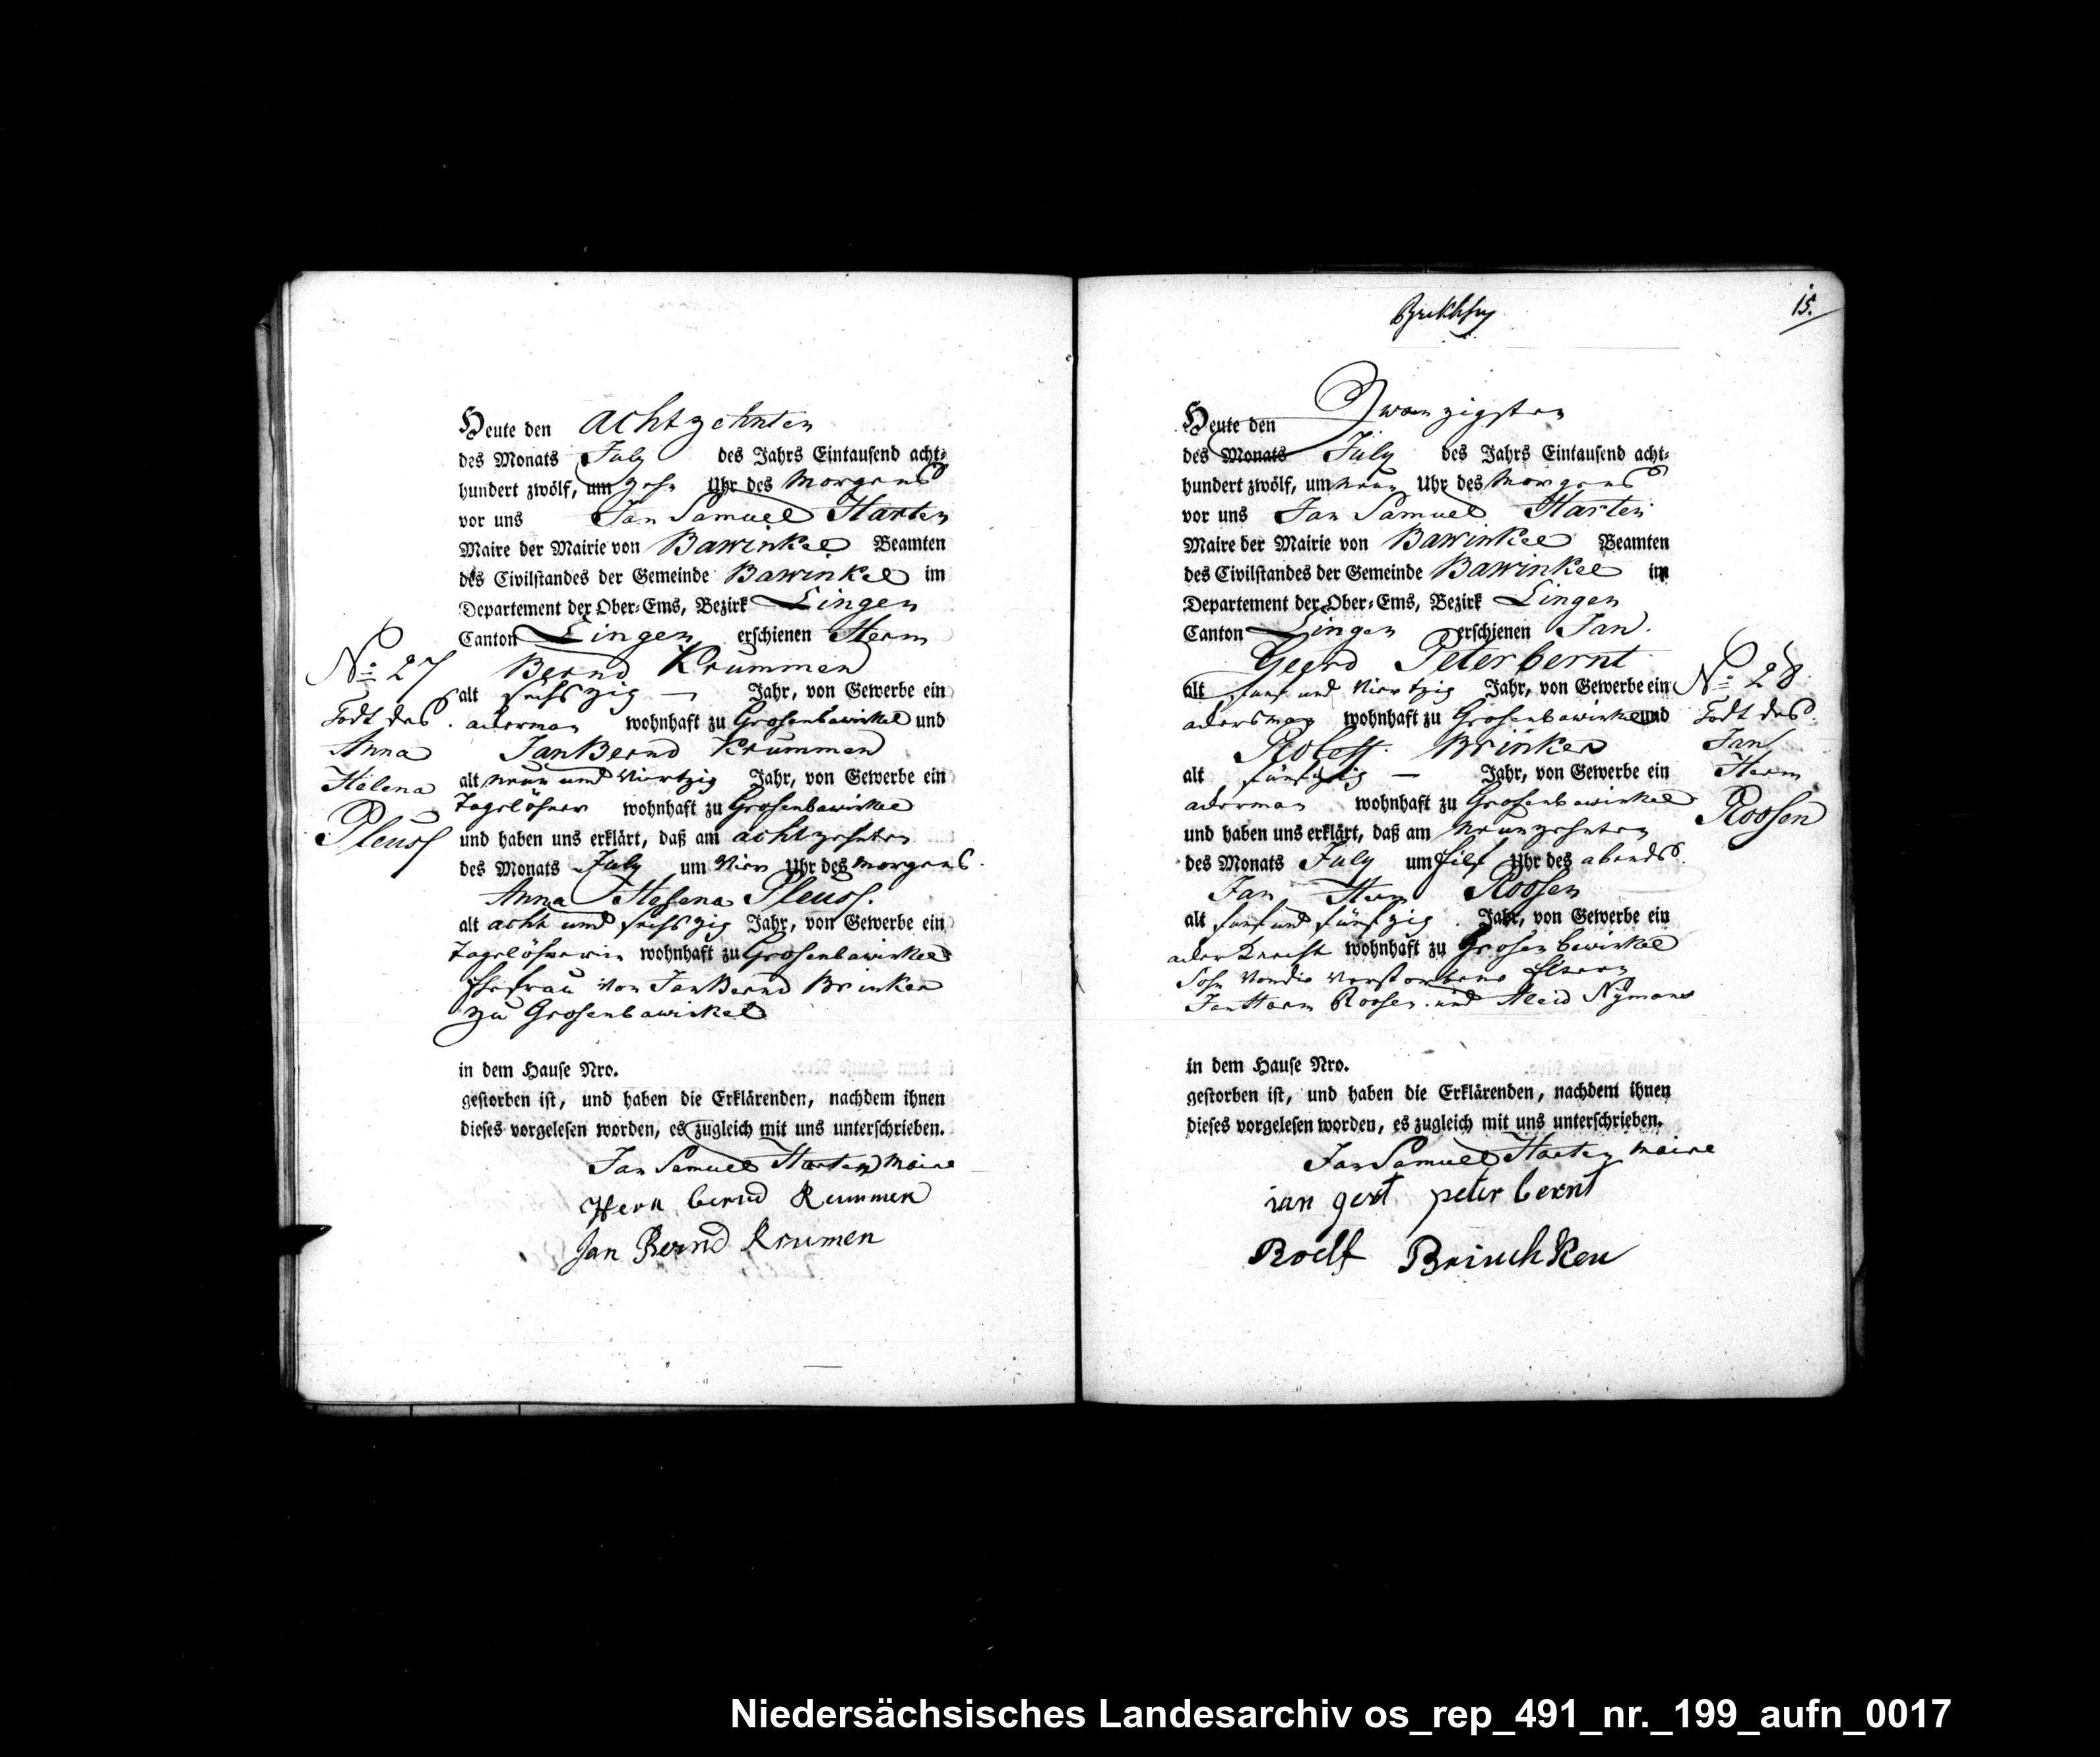 Heute den achtzehnten
des Monats July des Jahrs Eintausend acht-
hundert zwölf, um zehn Uhr des Morgens
vor uns Jan Samuel Harten
Maire der Mairie von Bawinkel Beamten
des Civilstandes der Gemeinde Bawinkel im
Departement der Ober-Ems, Bezirk Lingen
Canton Lingen erschienen Herm
Bernd Krummen
alt sechszig — Jahr, von Gewerbe ein
ackerman wohnhaft zu Grosenbawinkel und
Jan Bernd Krummen
alt neun und Viertzig Jahr, von Gewerbe ein
Tagelöhner wohnhaft zu Grosenbawinkel
und haben uns erklärt, daß am achtzehnten
des Monats July um Vier Uhr des Morgens
Anna Helena Pleus.
alt acht und sechszig Jahr, von Gewerbe ein
Tagelöhnerin wohnhaft zu Grosenbawinkel
Ehefrau von Jan Bernd Brinker
zu Grosenbawinkel
in dem Hause Nro.
gestorben ist, und haben die Erklärenden, nachdem ihnen
dieses vorgelesen worden, es zugleich mit uns unterschrieben.
Jan Samuel Harten Maire
Herm bernd Krummen
Jan Bernd Krumen
No 27
Todt des
Anna
Helena
Pleus
15.
Heute den Zwanzigsten
des Monats July des Jahrs Eintausend acht-
hundert zwölf, um neun Uhr des Morgens
vor uns Jan Samuel Harten
Maire der Mairie von Bawinkel Beamten
des Civilstandes der Gemeinde Bawinkel im
Departement der Ober-Ems, Bezirk Lingen
Canton Lingen erschienen Jan
Geerd Peterbernt
alt fünf und Viertzig Jahr, von Gewerbe ein
ackersman wohnhaft zu Grosenbawinkel und
Roleff Brinker
alt fünfzig — Jahr, von Gewerbe ein
ackerman wohnhaft zu Grosenbawinkel
und haben uns erklärt, daß am Neunzehnten
des Monats July um Eilf Uhr des abends.
Jan Herm Roosen
alt fünf und fünfzig Jahr, von Gewerbe ein
acker Knecht wohnhaft zu Grosenbawinkel
Sohn Von die Verstorbene Eltern
Jan Harm Roosen und Aleid Nÿmans
in dem Hause Nro.
gestorben ist, und haben die Erklärenden, nachdem ihnen
dieses vorgelesen worden, es zugleich mit uns unterschrieben.
Jan Samuel Harten Maire
ian gert peter bernt
Roelf
No 28
Todt des
Jan
Herm
Roosen
Niedersächsisches Landesarchiv os_rep_491_nr._199_aufn_0017